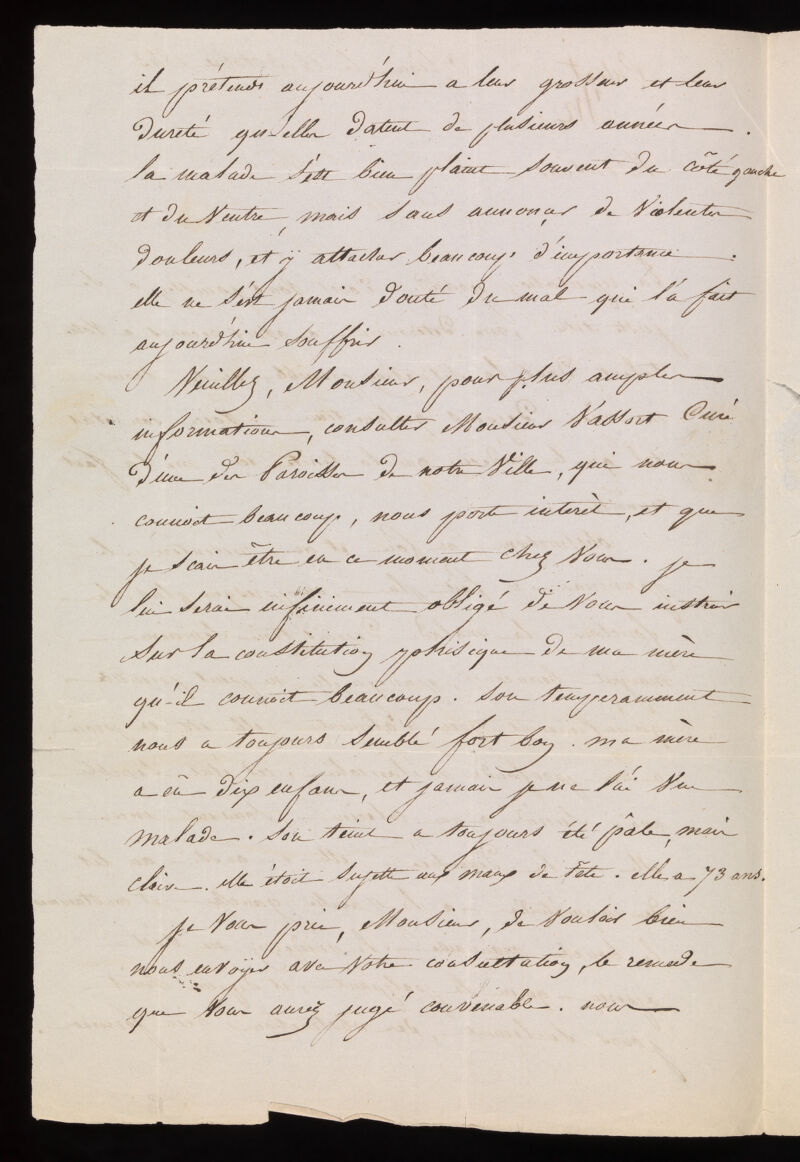 il prétend aujourd'hui a leur grosseur et leur
dureté qu'elles datent de plusieurs années.
la malade s'est bien plaint souvent du côté gauche
et du Ventre, mais sans annoncer de Violentes
douleurs, et y attacher beaucoup d'importance.
elle ne s'est jamais doutée du mal qui l'a fait
aujourd'hui souffrir.
Veuillez, Monsieur, pour plus amples
informations, consulter Monsieur Vassort Curé
d'une des Paroisses de notre Ville, qui nous
connoit beaucoup, nous porte interèt, et que
je scais être en ce moment chez Vous. je
lui serai infiniment obligé de Vous instruire
sur la constitution phisique de ma mère
qu'il connoit beaucoup. son temperamment
nous a toujours semblé fort bon. ma mère
a eû dix enfans, et jamais je ne l'ai Vue
malade. son teint a toujours été pâle, mais
clair. elle étoit sujette aux maux de tête. elle a 73 ans.
je Vous prie, Monsieur, de Vouloir bien
nous envoyer avec Votre consultation, le remede
que Vous aurez jugé convenable. nous